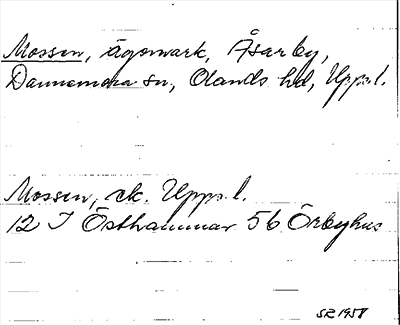 Mossen, ägomark, Åsarby,
Dannemora sn, Olands hd, Uppl.
Mossen, ek. Upps. l.
12 I Östhammar 56 Örbyhus
SR 1958